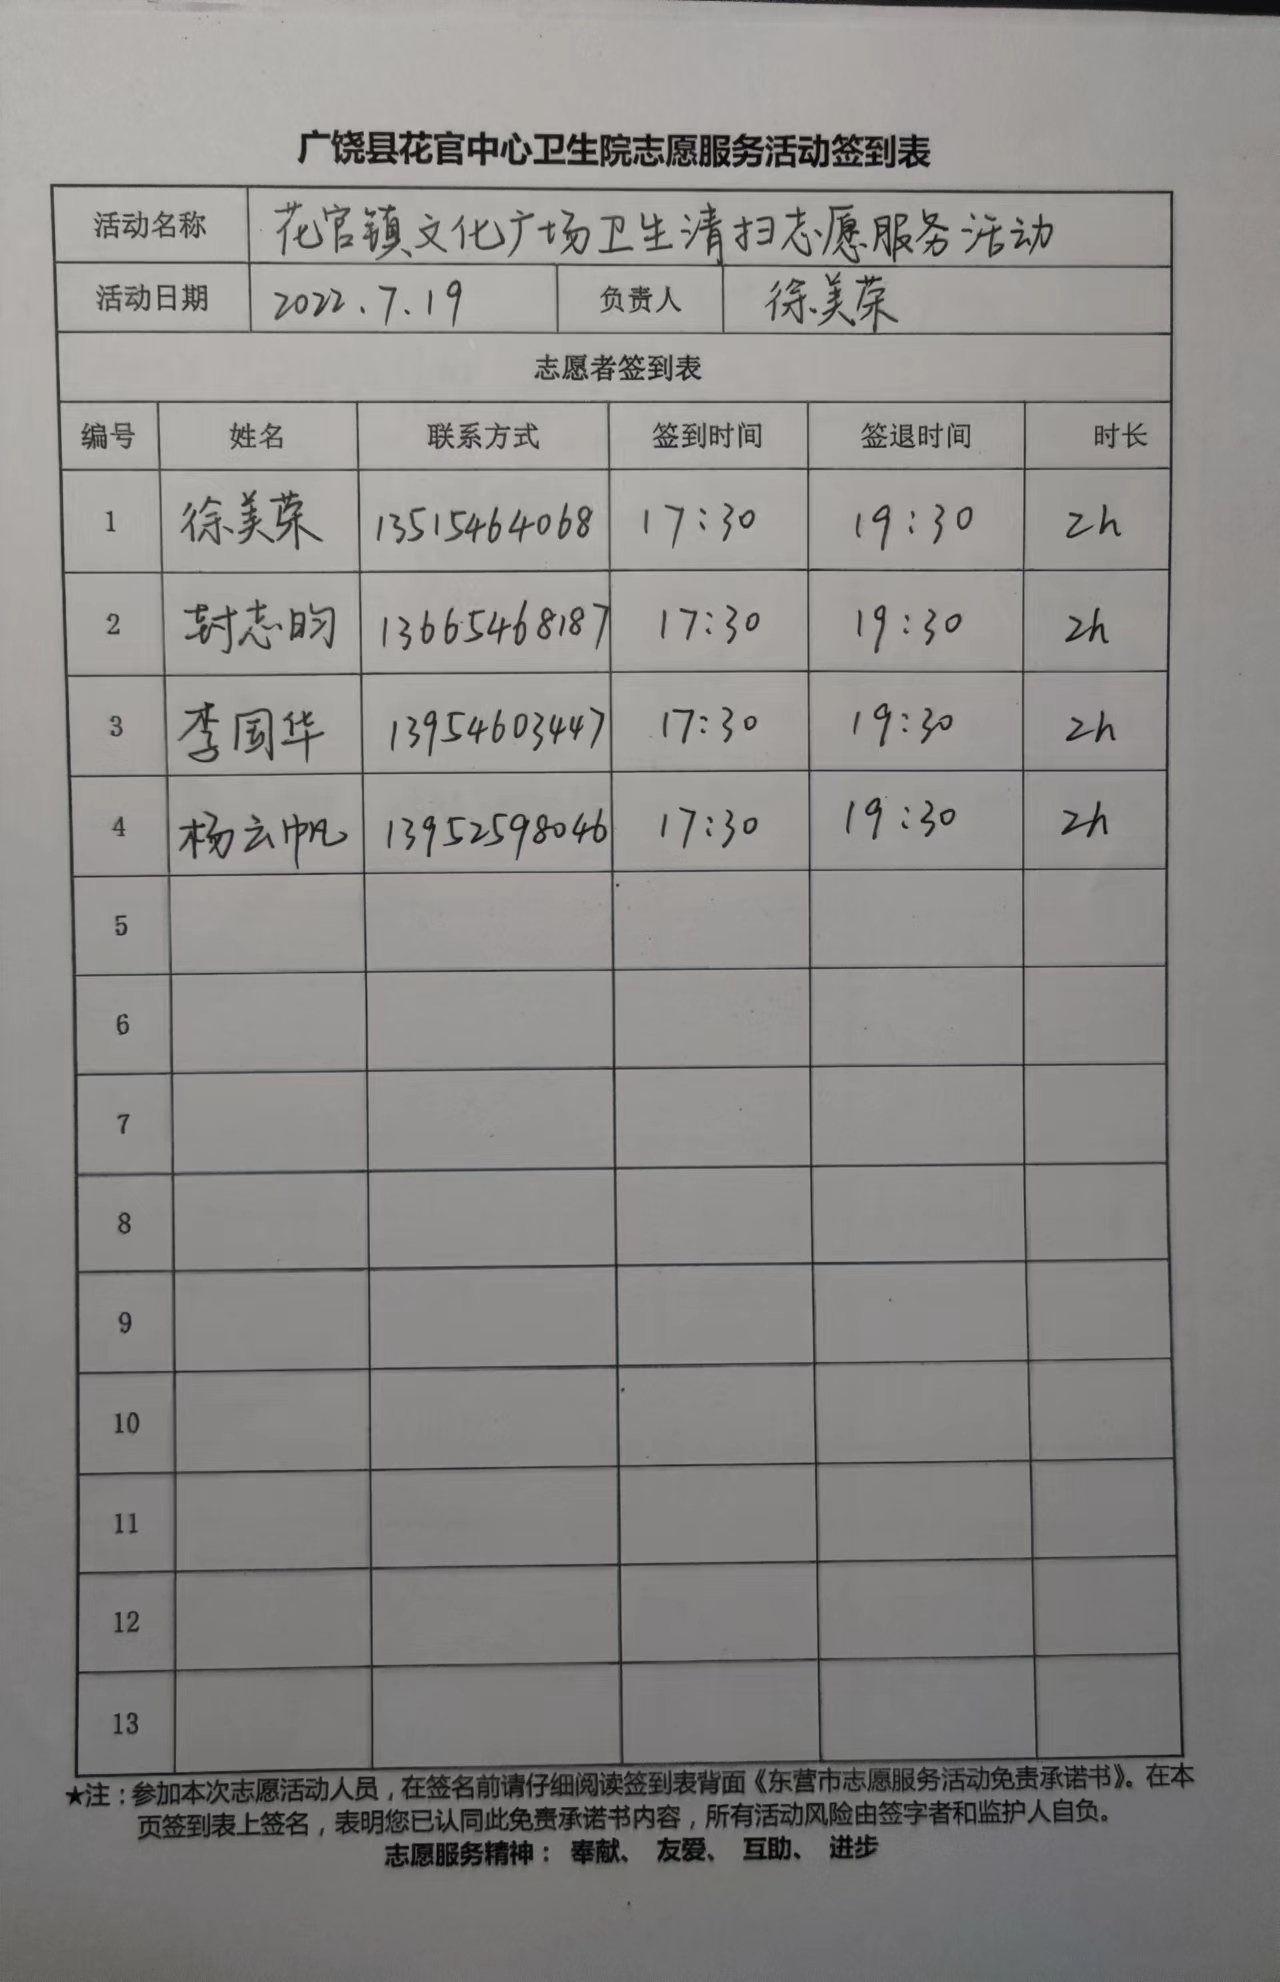 广饶县花官中心卫生院志愿服务活动签到表
活动名称 花官镇文化广场卫生清扫志愿服务活动
活动日期 2022.7.19 负责人 徐美荣
志愿者签到表
编号 姓名 联系方式 签到时间 签退时间 时长
1 徐美荣 13515464068 17:30 19:30 2h
2 封志昀 13665468187 17:30 19:30 2h
3 李国华 13954603447 17:30 19:30 2h
4 杨云帆 13952598046 17:30 19:30 2h
5
6
7
8
9
10
11
12
13
★注：参加本次志愿活动人员，在签名前请仔细阅读签到表背面《东营市志愿服务活动免责承诺书》。在本
页签到表上签名，表明您已认同此免责承诺书内容，所有活动风险由签字者和监护人自负。
志愿服务精神： 奉献、 友爱、 互助、 进步